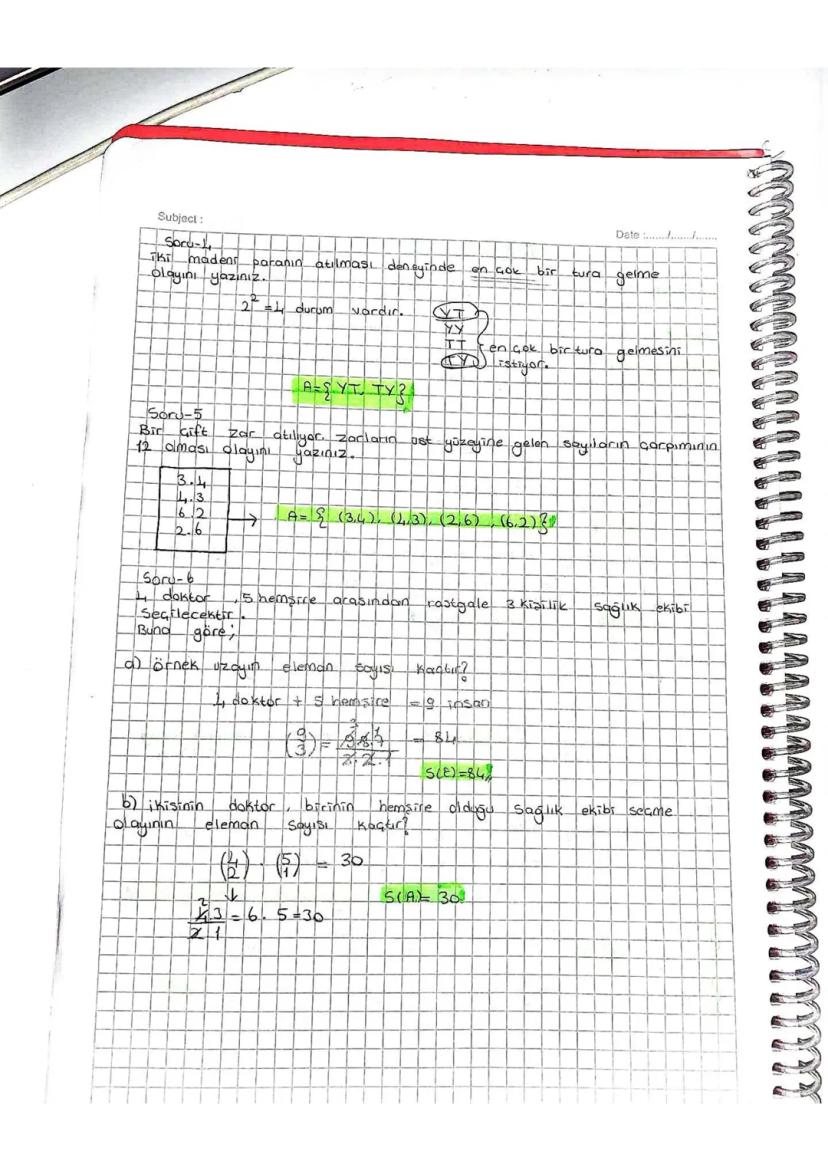 Subject :
Date :....../....../......
Soru-4
İki madeni paranın atılması deneyinde en çok bir tura gelme
olayını yazınız.
2² = 4 durum vardır.
YT
YY
TT
TY
en çok bir tura gelmesini
istiyor.
A={YT, TY}
Soru-5
Bir çift zar atılıyor. zarların üst yüzeyine gelen sayıların çarpımının
12 olması olayını yazınız.
3.4
4.3
6.2
2.6
A= { (3,4), (4,3), (2,6), (6,2)}
Soru-6
4 doktor, 5 hemşire arasından rastgale 3 kişilik sağlık ekibi
seçilecektir.
Buna göre;
a) örnek uzayın eleman sayısı kaçtır?
4 doktor + 5 hemşire = 9 insan
(9 3) = 9.8.7 / 3.2.1 = 84
S(E)=84
b) ikisinin doktor, birinin hemşire olduğu sağlık ekibi seçme
olayının eleman sayısı kaçtır?
(4 2) . (5 1) = 30
S(A)= 30
4.3 / 2.1 = 6 . 5 = 30